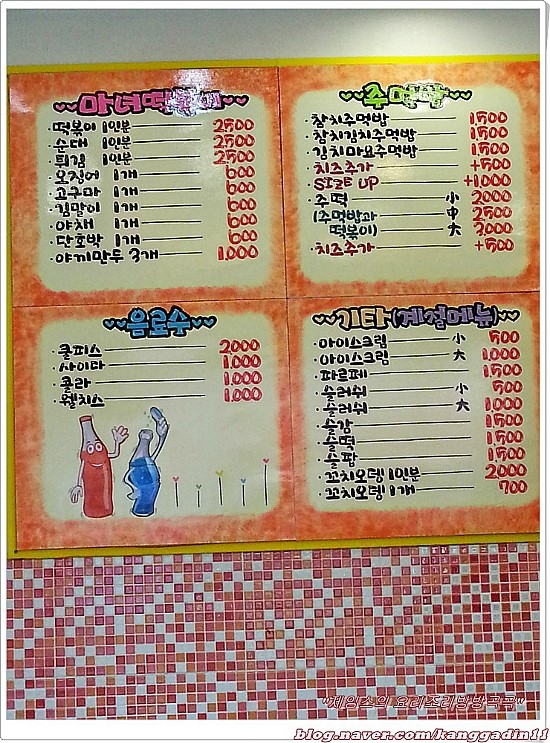 마녀떡볶이
떡볶이 1인분 2500
순대 1인분 2500
튀김 1인분 2500
오징어 1개 600
고구마 1개 600
김말이 1개 600
야채 1개 600
단호박 1개 600
야끼만두 3개 1,000
주먹밥
참치주먹밥 1,500
참치김치주먹밥 1,500
김치마요주먹밥 1,500
치즈추가 +500
SIZE UP +1,000
주떡 小 2000
(주먹밥과 中 2,500
떡볶이) 大 3,000
치즈추가 +500
음료수
쿨피스 2000
사이다 1,000
콜라 1,000
웰치스 1,000
기타(계절메뉴)
아이스크림 小 500
아이스크림 大 1,000
파르페 1,500
슬러쉬 小 500
슬러쉬 大 1,000
슬감 1,500
슬떡 1,500
슬팝 1,500
꼬치오뎅 1인분 2000
꼬치오뎅 1개 700
"제임스의 요리조리방방곡곡"
blog.naver.com/kanggadin11